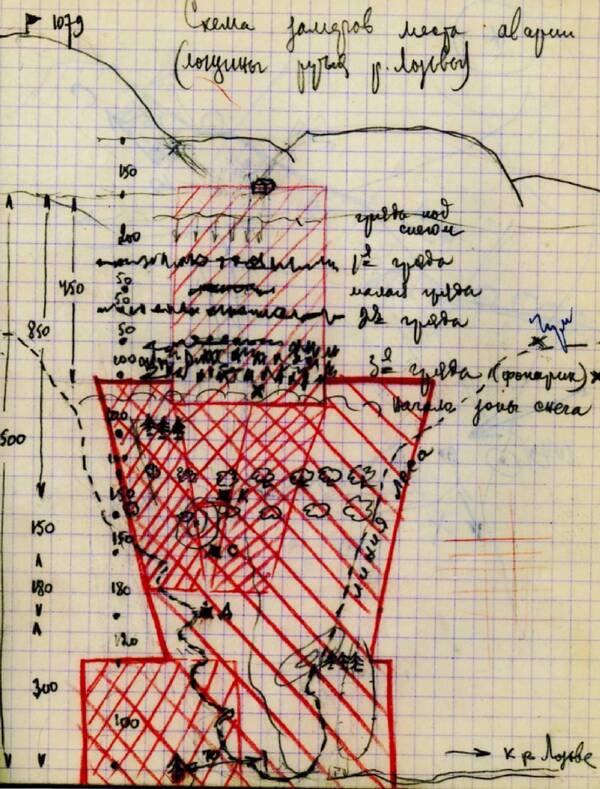 1079
Схема замеров места аварии
(лощины ручья р. Лозьвы)
150
гряда под
снегом
200
1я гряда
50
450
малая гряда
50
2я гряда
850
50
100
3я гряда (фонарик)
начала зоны снега
500
150
К
линия леса
150
150
С
180
180
Д
120
300
100
70
к р. Лозьве